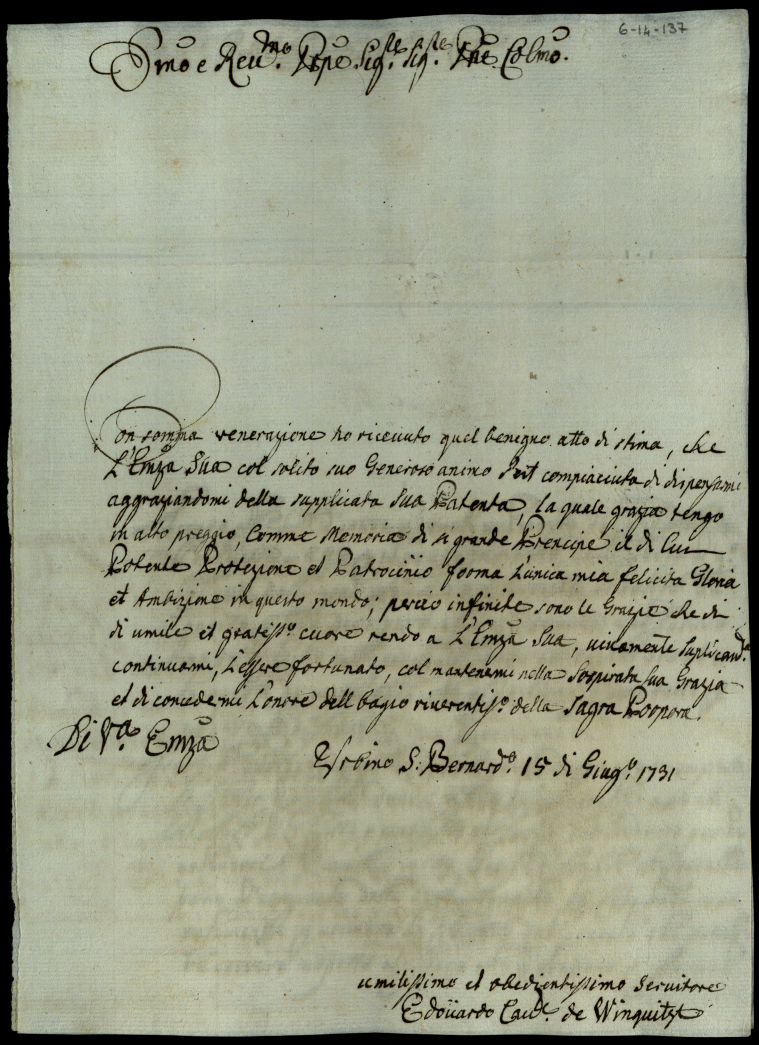 6-14-137
Emo e Reu.mo Ppe Sig.re Sig.re Pne Colmo.
Con somma venerazione ho riceuuto quel benigno atto di stima, che
L'Emza Sua col solito suo Generoso animo compiaciuta di dispensarmi
aggraziandomi della supplicata sua Patenta, la quale grazia tengo
in alto preggio, Comme Memoria di si grande Prencipe il di Cui
Potente Protezione et Patrocinio forma L'unica mia felicita Gloria
et Ambizione in questo mondo; percio infinite sono le Grazie che di
di umile et gratiss.o cuore rendo a L'Emza Sua, uiuamente suplicand.a
continuarmi, L'essere fortunato, col mantenermi nella Sospirata sua Grazia
et di concedermi L'onore dell bagio riuerentiss.o della Sagra Porpora.
Di V.a Emza
Urbino S: Bernard.o 15 di Giug.o 1731
umilissimo et obedientissimo Seruitore
Edoüardo Cau.r de Winquitzt